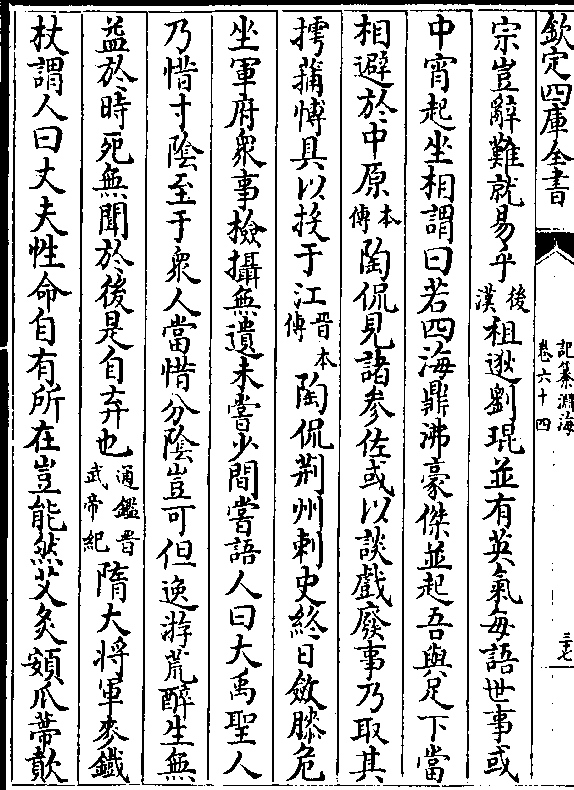 欽定四庫全書
記纂淵海
卷六十四
三七
宗豈辭難就易乎後漢祖逖劉琨並有英氣每語世事或
中宵起坐相謂曰若四海鼎沸豪傑並起吾與足下當
相避於中原本傳陶侃見諸參佐或以談戲廢事乃取其
摴蒱愽具以投于江晋本傳陶侃荆州刺史終日斂膝危
坐軍府衆事檢攝無遺未嘗少間嘗語人曰大禹聖人
乃惜寸陰至于衆人當惜分陰豈可但逸游荒醉生無
益於時死無聞於後是自弃也通鑑晋武帝紀隋大将軍麥鐵
杖謂人曰丈夫性命自有所在豈能然艾灸頞爪蔕歕